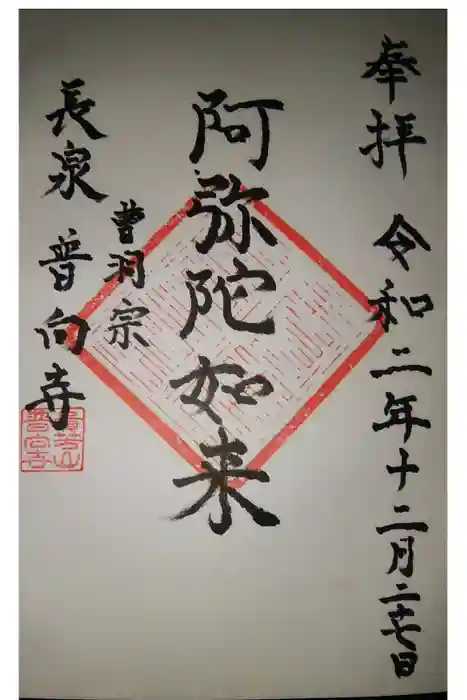 奉拝 令和二年十二月二十七日
阿弥陀如来
曹洞宗
長泉 普向寺